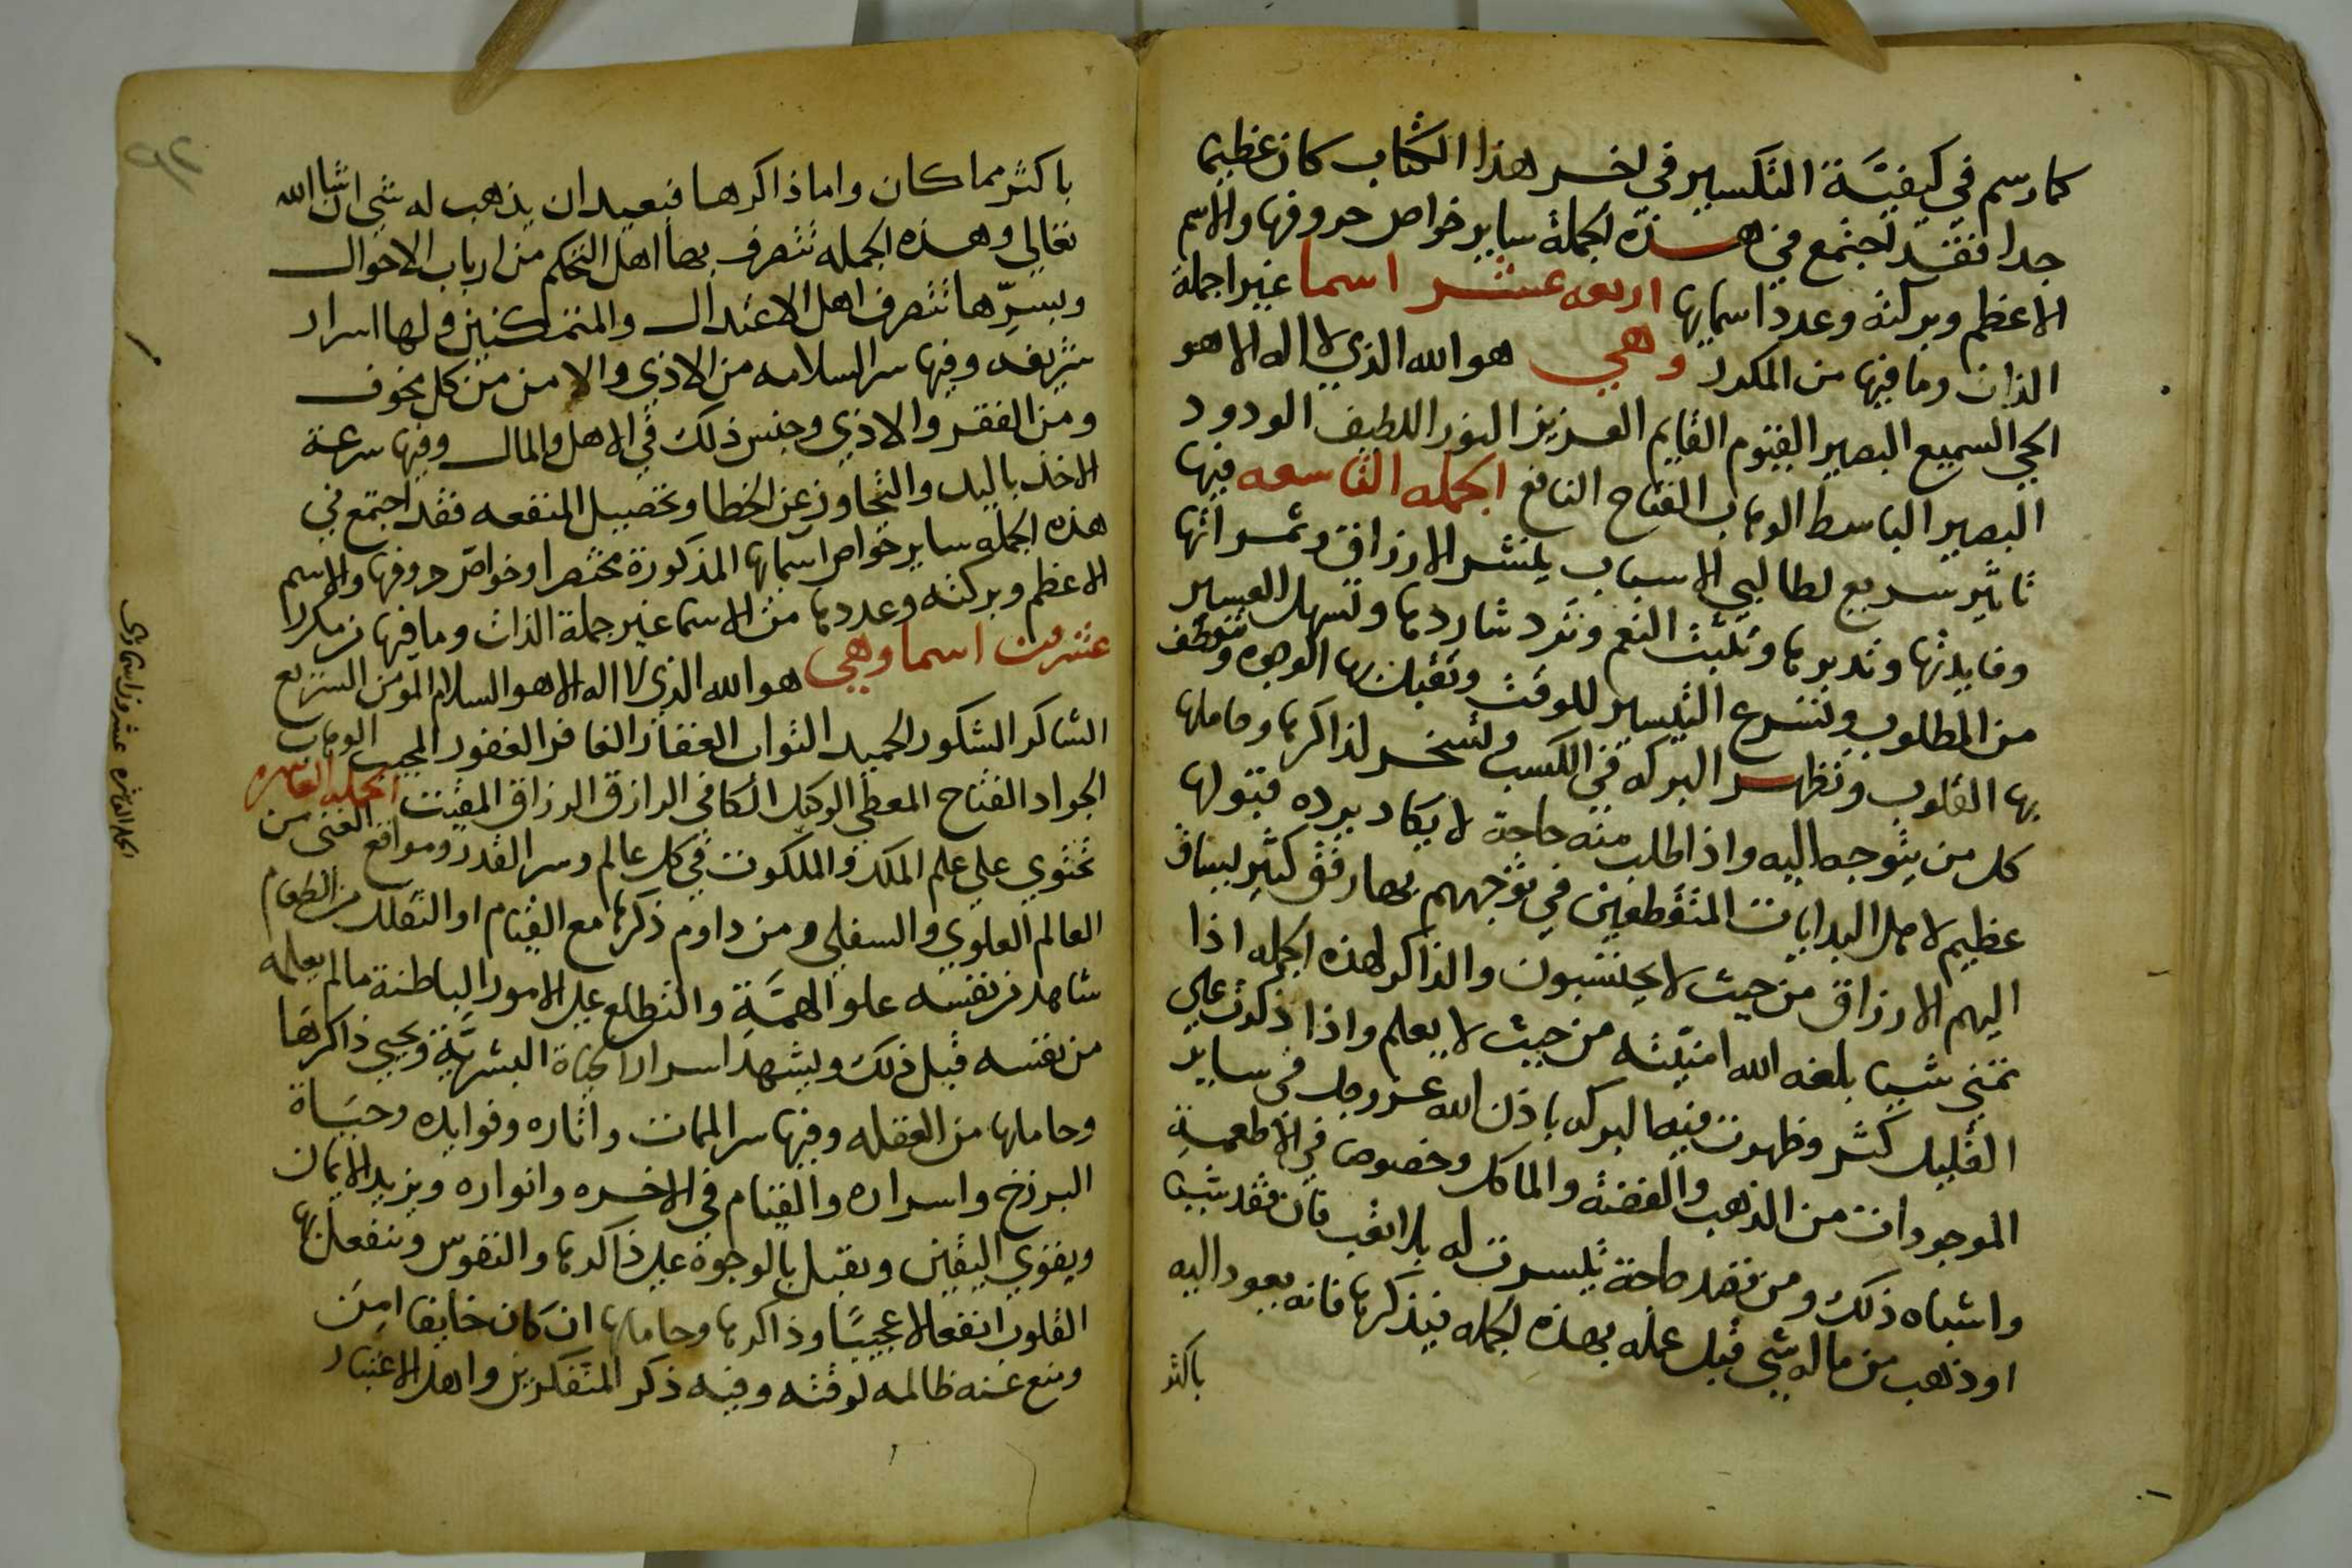 كما رسم في كيفيّة التكسير في اخر هذا الكتاب كان عظيما
جدا فقد اجتمع في هذه الجملة ساير خواص حروفها والاسم
الاعظم وبركته وعدد اسمايها اربعه عشر اسما غير اجملة
الذات وما فيها من المكرر وهي هو الله الذي لا اله الا هو
الحي السميع البصير القيوم القايم العزيز النور اللطيف الودود
البصير الباسط الوهاب الفتاح النافع الجمله التاسعه فيها
تاثير سريع لطالبي الاسباب ينتشر الارزاق وثمراتها
وفايدتها وتدبرها وتثبت النعم وترد شاردها وتسهل العسير
من المطلوب وتسرع التيسير للوقت وتقبل بها الوجوه وتنعطف
بها القلوب وتظهر البركه في الكسب وتسخر لذاكرها وحاملها
كل من يتوجه اليه واذا طلب منه حاجة لا يكاد يرده قبولها
عظيم لاهل البدايات المنقطعين في توجههم بها رفق كثير يساق
اليهم الارزاق من حيث لا يحتسبون والذاكر لهذه الجمله اذا
تمني شيا بلغه الله امنيّته من حيث لا يعلم واذا ذكرت علي
القليل كثر وظهرت فيه البركه باذن الله عز وجل في ساير
الموجودات من الذهب والفضة والماكل وخصوص في الاطعمة
واشباه ذلك ومن فقد حاجة تيسرت له بلا تعب فان فقد شيا
او ذهب من ماله شي قبل عمله بهذه الجمله فيذكرها فانه يعود اليه
باكثر
باكثر مما كان واما ذاكرها فبعيد ان يذهب له شي ان شا الله
تعالي وهذه الجمله تتصرف بها اهل التحكم من ارباب الاحوال
وبسرّها تتصرف اهل الاعتدال والمتمكنين ولها اسرار
شريفه وفيها سر السلامه من الاذي والامن من كل مخوف
ومن الفقر والاذي وجنس ذلك في الاهل والمال وفيها سرعة
الاخذ باليد والتجاوز عن الخطا وتحصيل المنفعه فقد اجتمع في
هذه الجمله ساير خواص اسمايها المذكورة مختصرا وخواص حروفها والاسم
الاعظم وبركته وعددها من الاسما غير جملة الذات وما فيها من مكررا
عشرون اسما وهي هو الله الذي لا اله الا هو السلام المومن السريع
الشاكر الشكور الحميد التواب الغفار الغافر الغفور المجيب الوهاب
الجواد الفتاح المعطي الوكيل الكافي الرازق الرزاق المقيت الجمله العاشره
تحتوي علي علم الملك والملكوت في كل عالم وسر القدر ومواقع الغني من
العالم العلوي والسفلي ومن داوم ذكرها مع القيام او التقلل من الطعام
شاهد من نفسه علو الهمّة والتطلع علي الامور الباطنة مالم يعلمه
من نفسه قبل ذلك ويشهد اسرار الحياة البشريّة ويحيي ذاكرها
وحاملها من الغفله وفيها سر الممات واثاره وفوايده وحياة
البرزخ واسراره والقيام في الاخره وانواره ويزيد الايمان
ويقوي اليقين ويقبل بالوجوه علي ذاكرها والنفوس وتنفعل بها
القلوب انفعالا عجيبًا وذاكرها وحاملها ان كان خايفا امِنَ
ومنع عنه ظالمه لوقته وفيه ذكر المتفكرين واهل الاعتبار